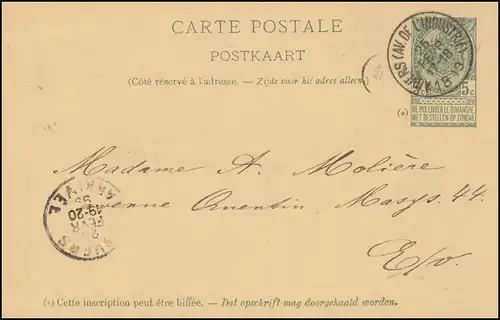 CARTE POSTALE
POSTKAART
(Côté réservé à l'adresse. — Zijde voor het adres alleen)
ANVERS (AV. DE L'INDUSTRIE)
5 C
NE PAS LIVRER LE DIMANCHE
NIET BESTELLEN OP ZONDAG
(*)
Madame A. Molière
Avenue Quentin Masys. 44.
E/v.
ANVERS
2
FEVR
19-20
ARRIVEE
(*) Cette inscription peut être biffée. — Dat opschrift mag doorgehaald worden.